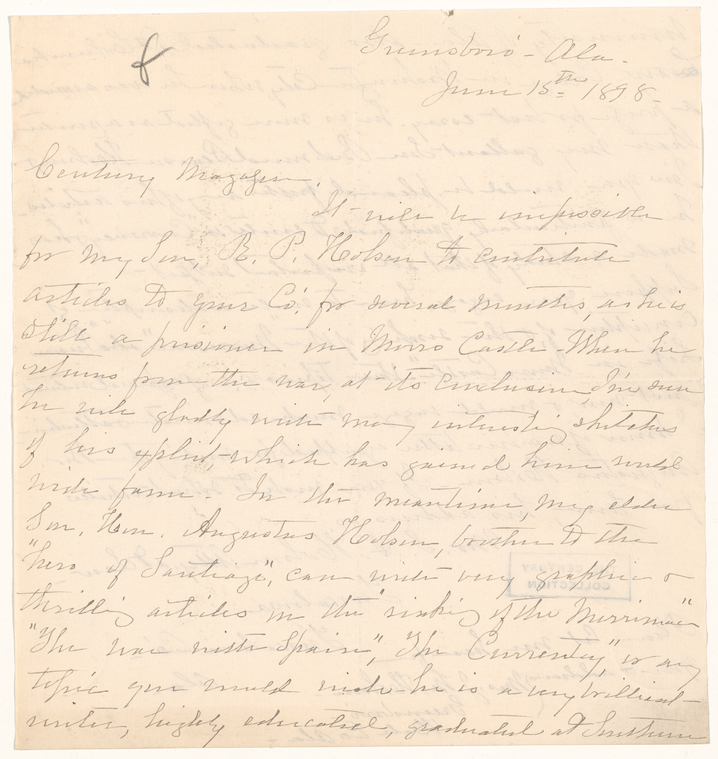 Greensboro - Ala.
June 15th 1898.
Century Magazine,
It will be impossible
for my Son, R. P. Hobson to contribute
articles to your Co. for several months, as he is
still a prisoner in Morro Castle - When he
returns from the war, at its conclusion I'm sure
he will gladly write many interesting sketches
of his exploit - which has gained him world
wide fame. In the meantime, my elder
Son, Hon. Augustus Hobson, brother to the
"hero of Santiago", can write very graphic &
thrilling articles on the "sinking of the Merrimac"
"The war with Spain", "The Currency", or any
topic you would wish he is a very brilliant
writer, highly educated, graduated at Southern
CENTURY
COLLECTION